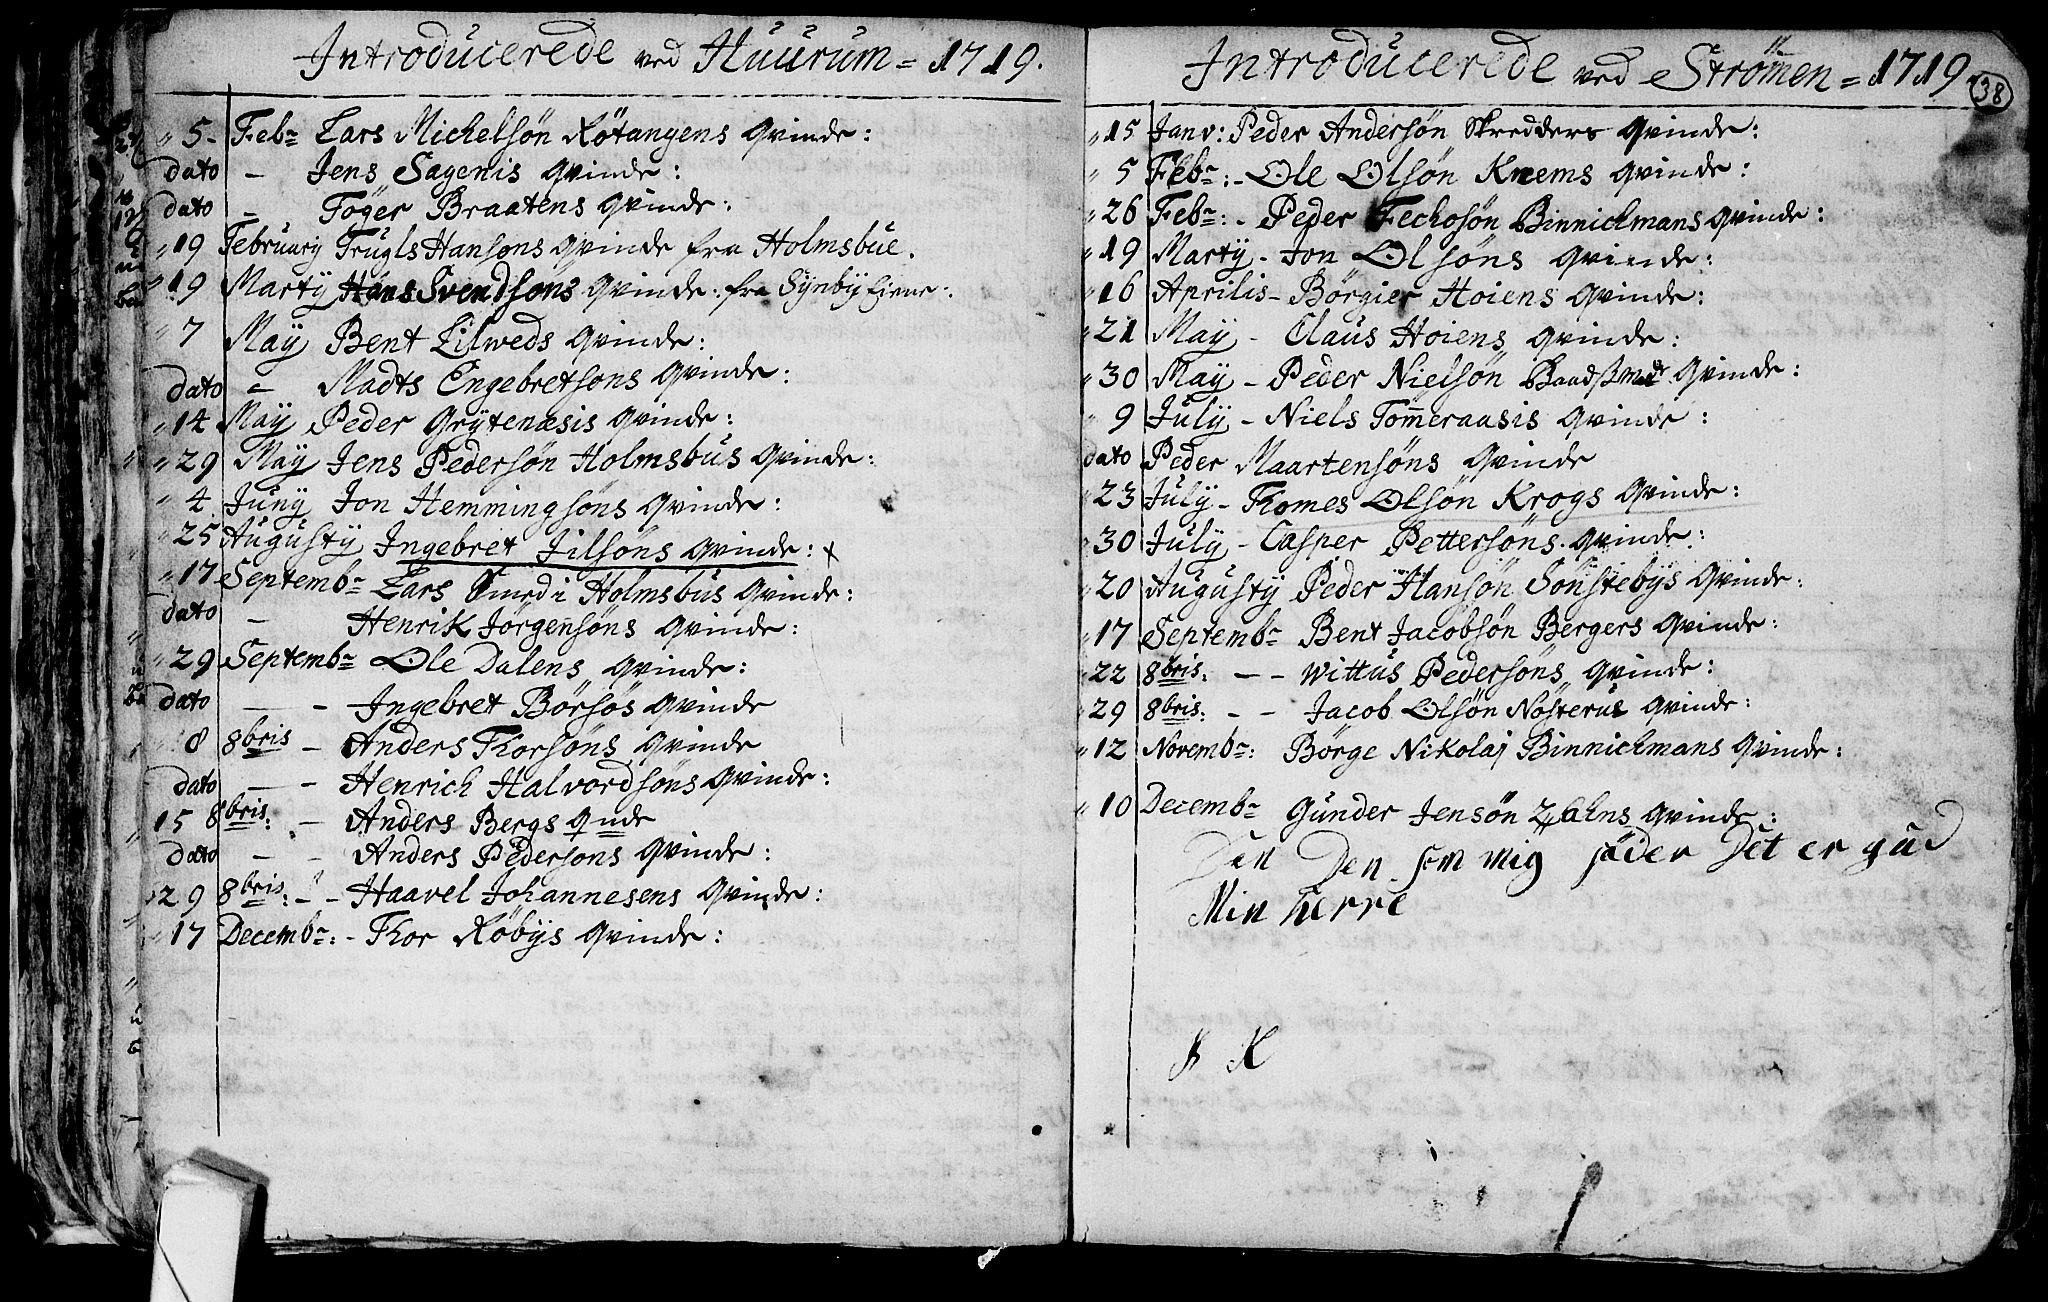 Introducerede ved Huurum = 1719.
" 5- Feb: Lars Michelsøn Rötangens Qvinde:
dato - Jens Sagenis Qvinde:
dato - Töger Braatens Qvinde:
" 19 February Trugls Hansons Qvinde fra Holmsbue.
" 19 Marty Hans Svendsöns Qvinde: fra
" 7 May Bent Lilweds Qvinde:
dato - Madts Engebretsons Qvinde:
" 14 May Peder Grytenæsis Qvinde:
" 29 May Jens Pedersøn Holmsbus Qvinde:
" 4 Juny Jon Hemmingsöns Qvinde:
" 25 Augusty Ingebret Jilsöns Qvinde: +
" 17 Septembr Lars Smed i Holmsbus Qvinde:
dato - Henrik Jörgensöns Qvinde:
" 29 Septembr Ole Dalens Qvinde:
dato - - Ingebret Börsös Qvinde
8 8bris - Anders Thorsöns Qvinde
dato - - Henrich Halvordsöns Qvinde:
15 8bris: - Anders Bergs Qnde
dato - - Anders Pedersons Qvinde:
29 8bris: - - Haavel Johannesens Qvinde:
" 17 Decembr: - Thor Röbys Qvinde:
Introducerede ved Strömen = 1719
38
" 15 Janv: Peder Andersøn Skredders Qvinde:
" 5 Febr: - Ole Olsøn Knems Qvinde:
" 26 Febr: - Peder Fechosøn Binnichmans Qvinde:
" 19 Marty - Jon Olsöns Qvinde:
" 16 Aprilis - Börgier Hoiens Qvinde:
" 21 May - Claus Hoiens Qvinde:
" 30 May - Peder Nielsøn Qvinde:
" 9 July - Niels Tom̄eraasis Qvinde:
dato Peder Maartensöns Qvinde
" 23 July - Thomes Olsøn Krogs Qvinde:
" 30 July - Casper Pettersöns Qvinde:
" 20 Augusty Peder Hansøn Sönstebys Qvinde:
" 17 Septembr Bent Jacobsøn Bergers Qvinde:
" 22 8bris: - - Wittus Pedersöns Qvinde:
" 29 8bris: - - Jacob Olsøn Nösteruc Qvinde:
" 12 Novembr: Börge Nikolaj Binnichmans Qvinde:
" 10 Decembr Gunder Jensøn Qvinde:
Den Den som mig föder Det er gud
Min herre
K